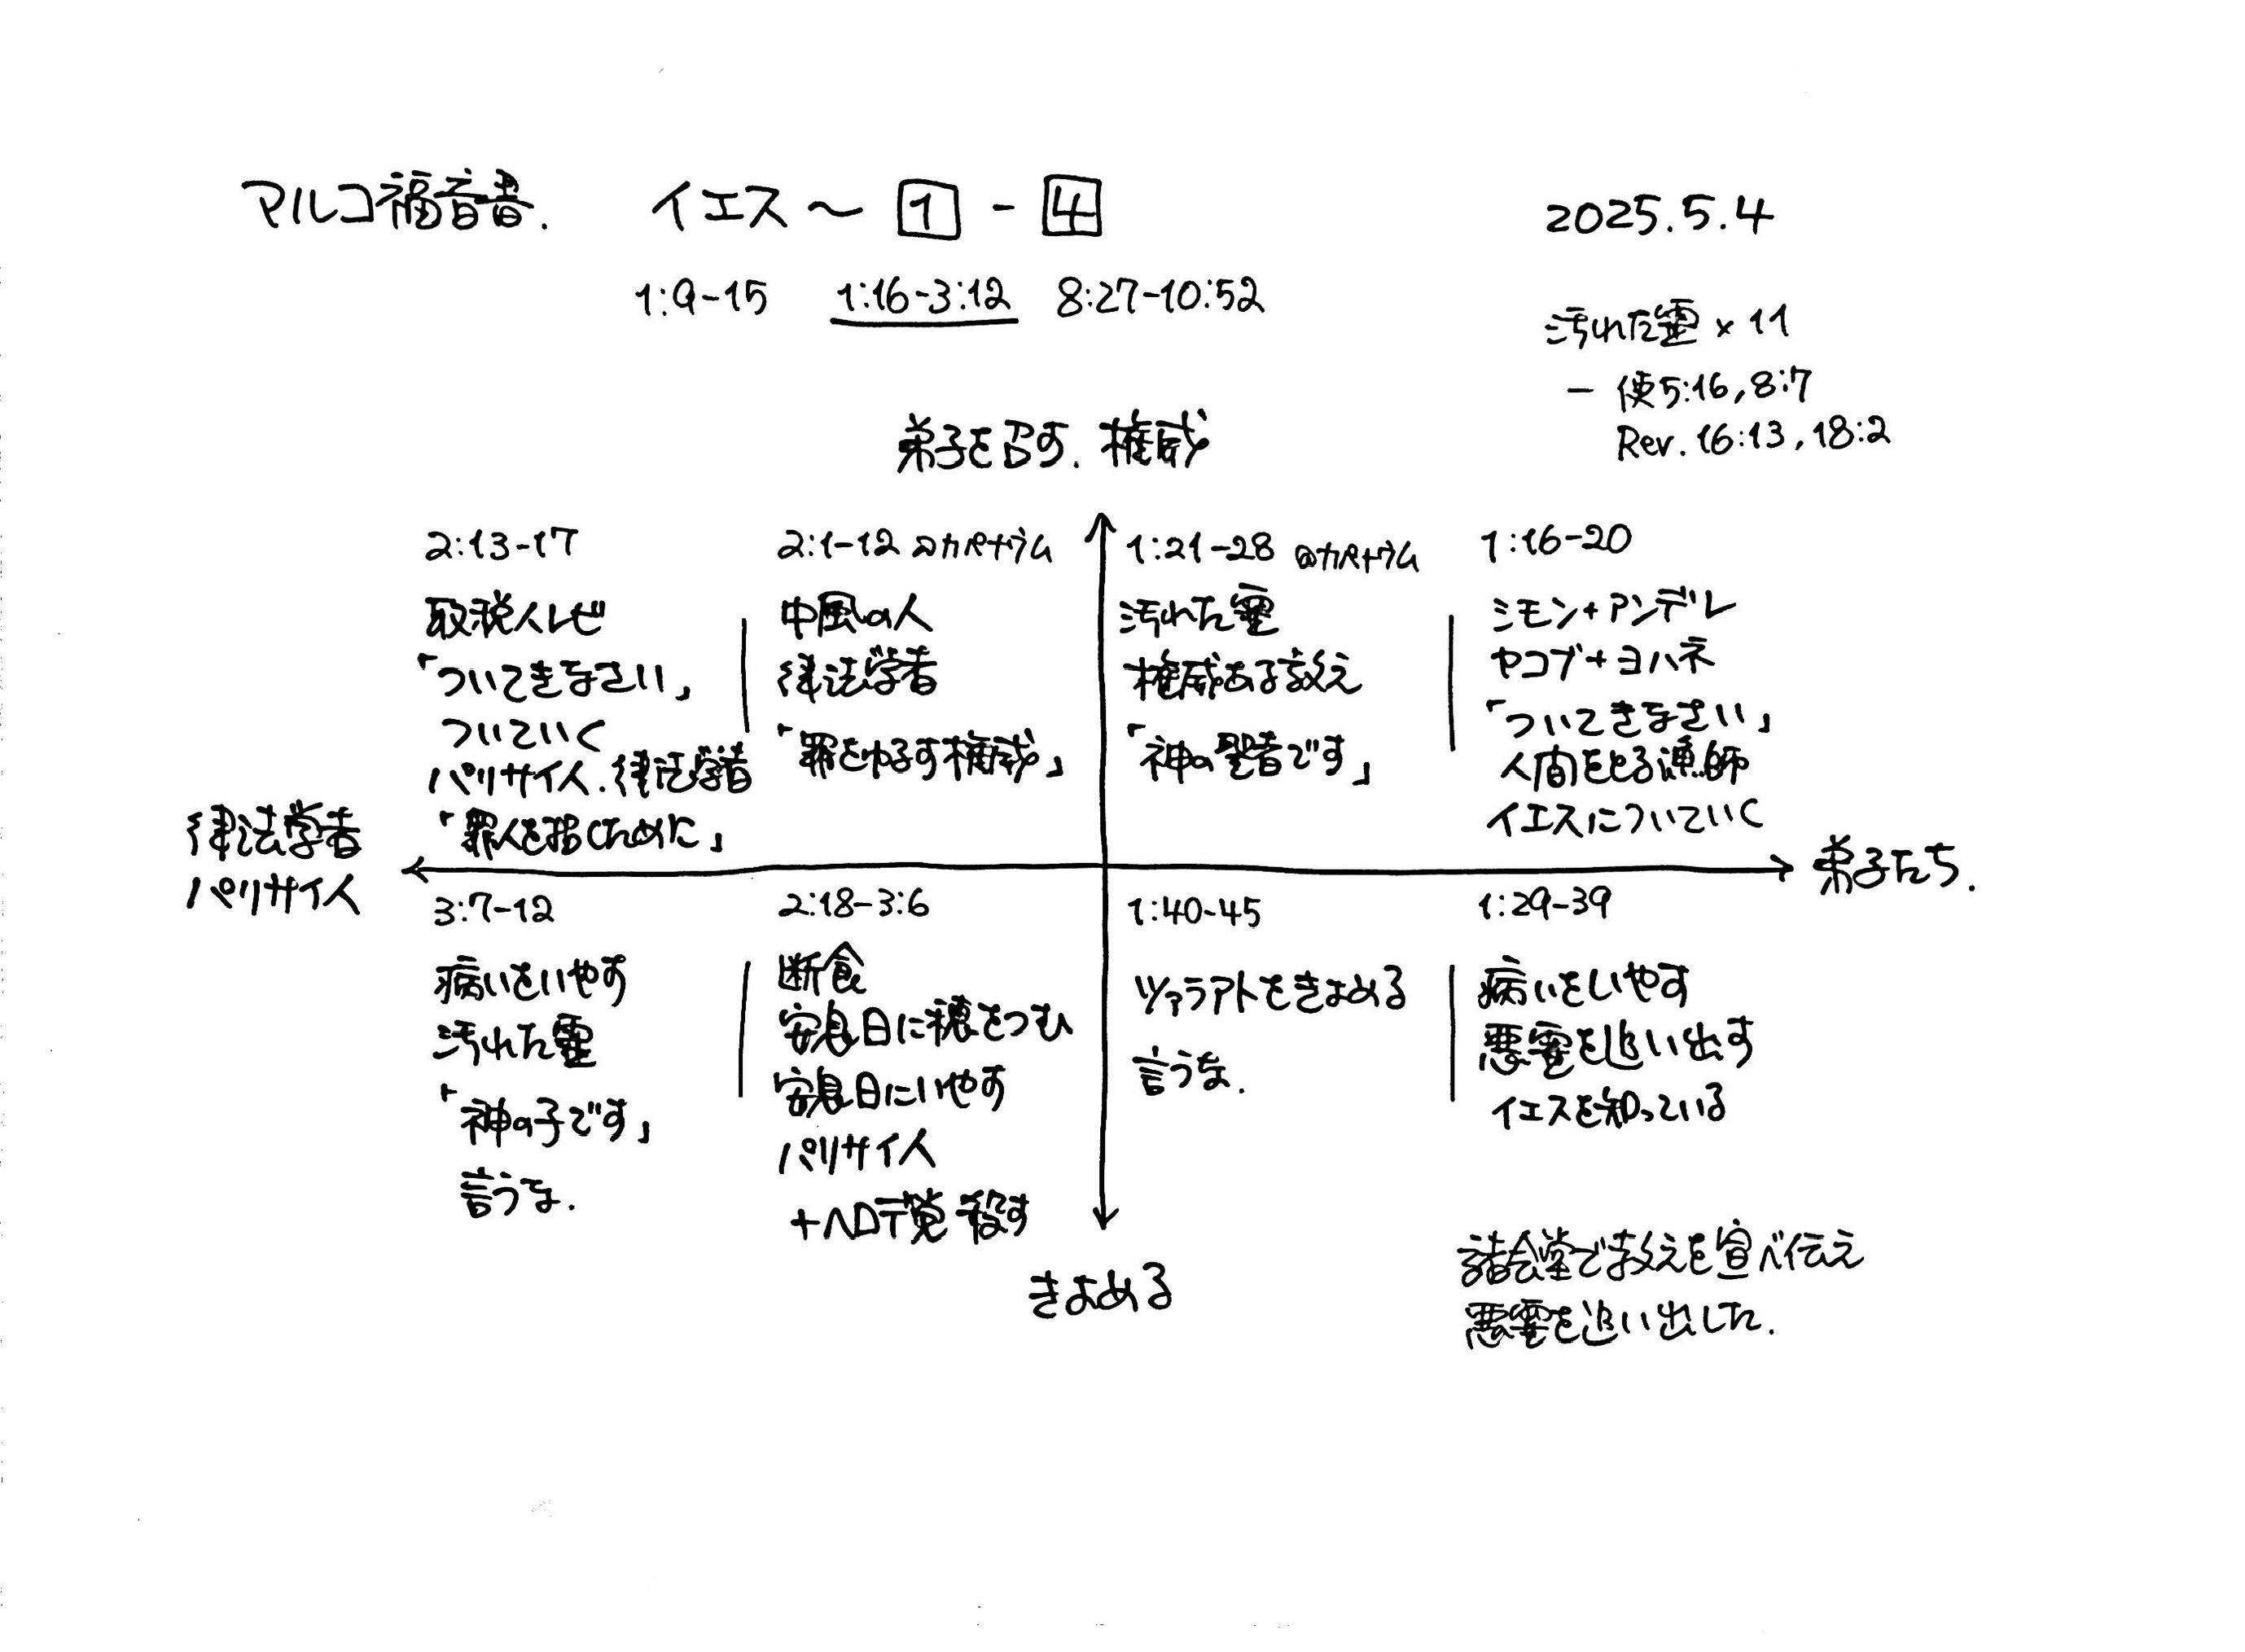 マルコ福音書. イエス〜 1 - 4 2025.5.4
1:9-15 1:16-3:12 8:27-10:52
汚れた霊 × 11
- 使5:16, 8:7
Rev. 16:13, 18:2
弟子を召す. 権威
2:13-17
取税人レビ
「ついてきなさい」
ついていく
パリサイ人. 律法学者
「罪人を招くために」
2:1-12 @カペナウム
中風の人
律法学者
「罪をゆるす権威」
1:21-28 @カペナウム
汚れた霊
権威ある教え
「神の聖者です」
1:16-20
シモン+アンデレ
ヤコブ+ヨハネ
「ついてきなさい」
人間をとる漁師
イエスについていく
律法学者
パリサイ人
弟子たち.
3:7-12
病いをいやす
汚れた霊
「神の子です」
言うな.
2:18-3:6
断食
安息日に穂をつむ
安息日にいやす
パリサイ人
+ヘロデ党 殺す
1:40-45
ツァラアトをきよめる
言うな.
1:29-39
病いをいやす
悪霊を追い出す
イエスを知っている
きよめる
諸会堂で教えを宣べ伝え
悪霊を追い出した.